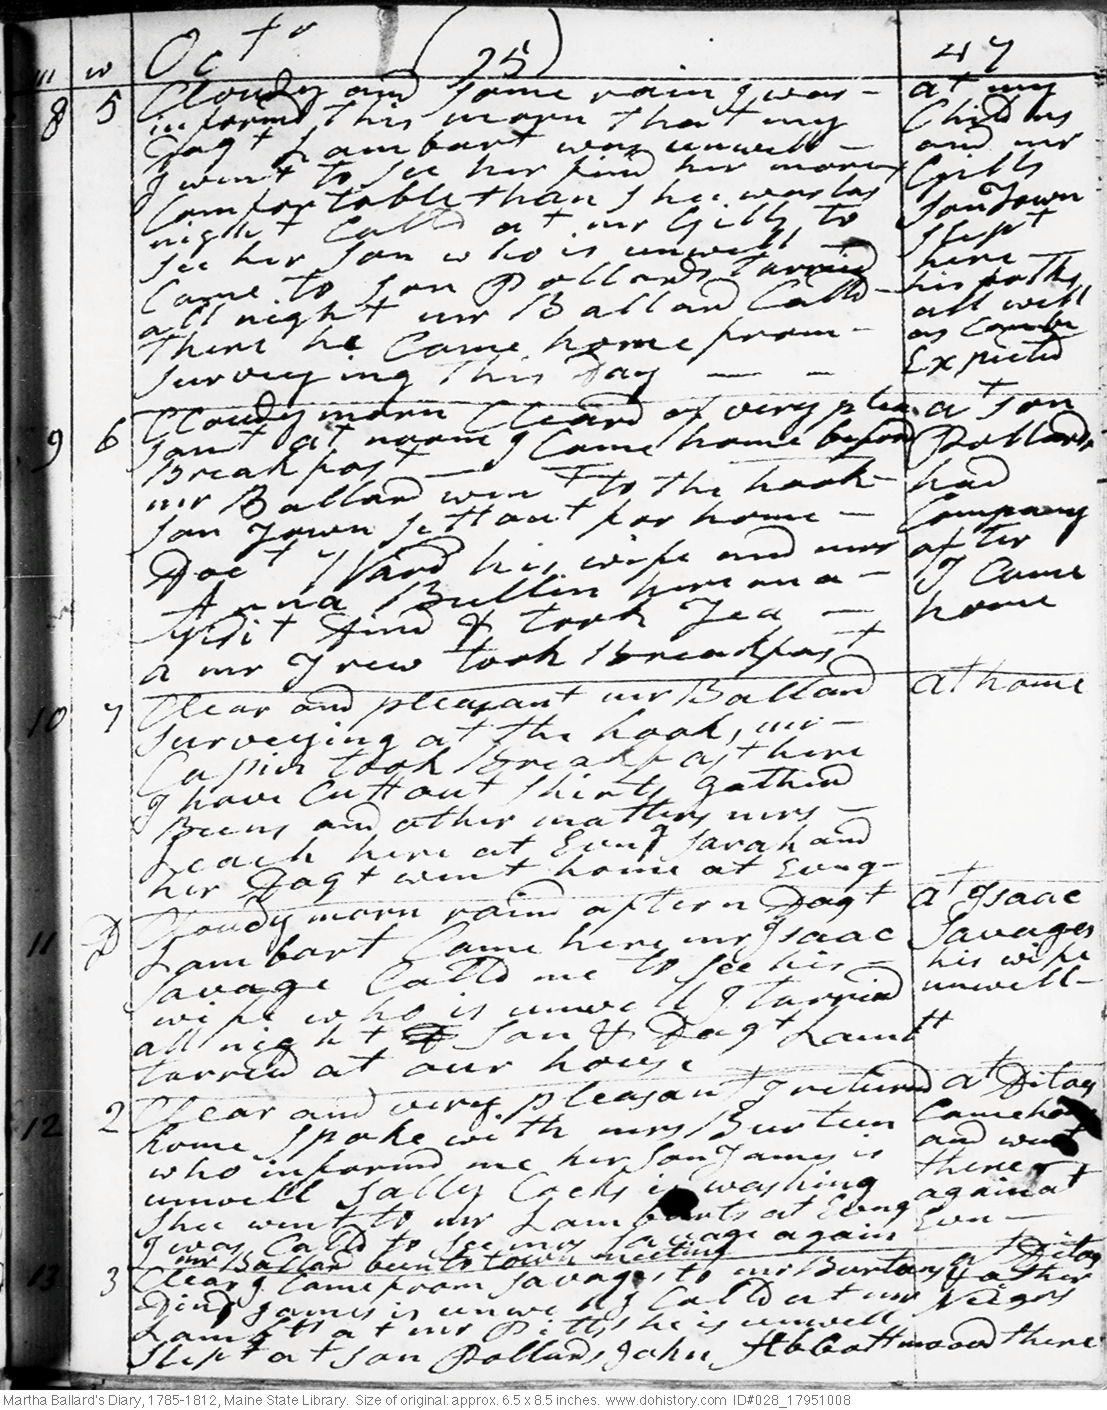 m w Octr (25) 47
8 5 Cloudy and some rain I was - at my
informd this morn that my Childns
Dagt Lambart was unwell - and mr
I went to see her find her more Gills
Comfortable than shee was las son Town
night Calld at mr Gills to slept
see her son who is unwell here -
Came to son Pollards tarried his folks
all night mr Ballard Calld - all well
there he Came home from - as Can be
surveying this Day — - Expected
9 6 Cloudy morn Cleard of very plea at son
sant at noone I Came home before Pollards
Breakfast — had
mr Ballard went to the hook - Company
son Town sett out for home - after
Doct Ward his wife and mrs I Came
Anna Bullin here on a - home
Visit Dind & took Tea -
a mr Trew took Breakfast
10 7 Clear and pleasant mr Ballard at home
surveying at the hook, mr -
Capin took Breakfast here
I have Cutt out shirts gatherd
Beens and other matters mrs -
Leach here at Evng Sarah and
her Dagt went home at Evng -
11 D Cloudy morn raind aftern Dagt at Isaac
Lambart Came here mr Isaac Savages
Savage Calld me to see his - his wife
wife who is unwell I tarried unwell -
all night son & Dagt Lambtt
tarried at our house
12 2 Clear and very pleasant I returnd at Ditoes
home spoke with mrs Burtun Came home
who informd me her son James is and went
unwell Sally Cocks is washing there
shee went to mr Lambarts at Evng again at
I was Calld to see mrs Savage again Evn -
mr Ballard been to town meeting
13 3 Clear I Came from Savages to mr Burtuns at Ditoes
Dind James is unwell I Calld at mr
Lambtts at mr Pitts he is unwell
slept at son Pollards John Abbott movd there